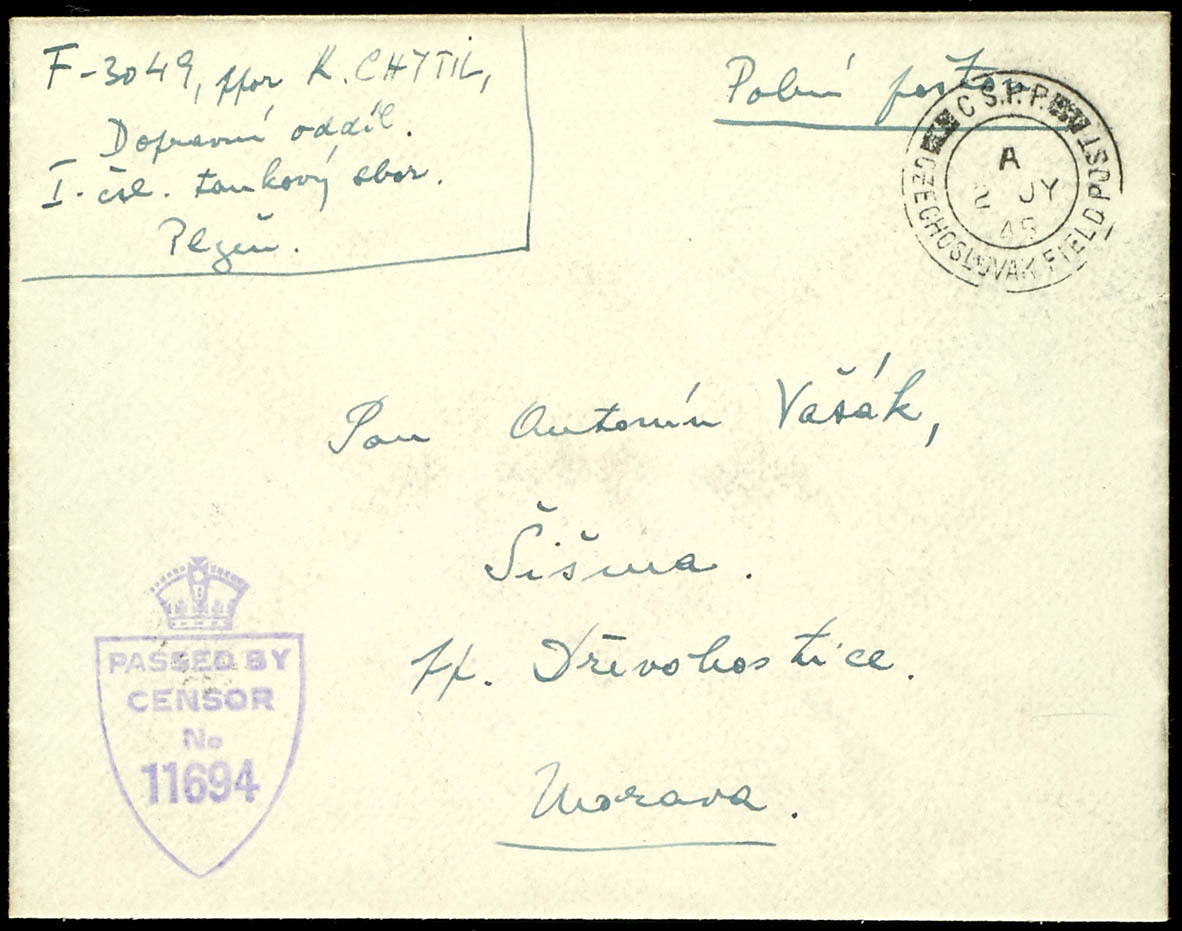 F-3049, ppor K. CHYTIL,
Dopravní oddíl.
I. čsl. tankový sbor.
Plzeň.
Polní pošta
C.S.P.P.
CZECHOSLOVAK FIELD POST
A
2 JY
45
Pan Antonín Vašák,
Šišma.
pp. Dřevohostice.
Morava.
PASSED BY
CENSOR
No
11694